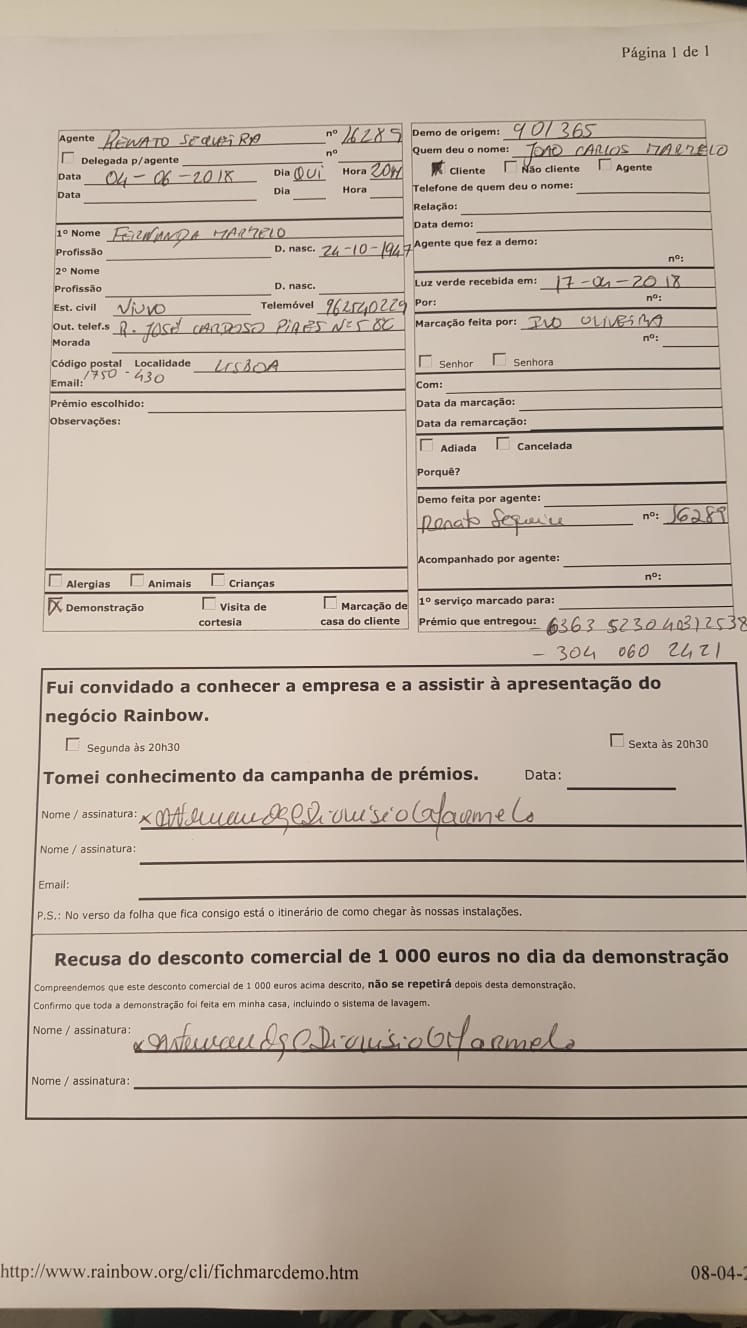 Página 1 de 1
Agente RENATO SEQUEIRA nº 16289
Delegada p/agente nº
Data 04-06-2018 Dia QUI Hora 20H
Data Dia Hora
1º Nome FERNANDA MARMELO
Profissão D. nasc. 24-10-1947
2º Nome
Profissão D. nasc.
Est. civil VIUVO Telemóvel 962540229
Out. telef.s R. JOSÉ CARDOSO PIRES Nº 5 8C
Morada
Código postal Localidade LISBOA
Email: 1750-430
Prémio escolhido:
Observações:
Alergias Animais Crianças
X Demonstração Visita de cortesia Marcação de casa do cliente
Demo de origem: 901365
Quem deu o nome: JOAO CARLOS MARMELO
Cliente Não cliente Agente
Telefone de quem deu o nome:
Relação:
Data demo:
Agente que fez a demo:
nº:
Luz verde recebida em: 17-04-2018
Por: nº:
Marcação feita por: IVO OLIVEIRA
nº:
Senhor Senhora
Com:
Data da marcação:
Data da remarcação:
Adiada Cancelada
Porquê?
Demo feita por agente:
Renato Sequeira nº: 16289
Acompanhado por agente:
nº:
1º serviço marcado para:
Prémio que entregou: - 6363 5230 40312538
- 304 060 2421
Fui convidado a conhecer a empresa e a assistir à apresentação do
negócio Rainbow.
Segunda às 20h30 Sexta às 20h30
Tomei conhecimento da campanha de prémios. Data:
Nome / assinatura: x
Nome / assinatura:
Email:
P.S.: No verso da folha que fica consigo está o itinerário de como chegar às nossas instalações.
Recusa do desconto comercial de 1 000 euros no dia da demonstração
Compreendemos que este desconto comercial de 1 000 euros acima descrito, não se repetirá depois desta demonstração.
Confirmo que toda a demonstração foi feita em minha casa, incluindo o sistema de lavagem.
Nome / assinatura: x
Nome / assinatura:
http://www.rainbow.org/cli/fichmarcdemo.htm 08-04-2